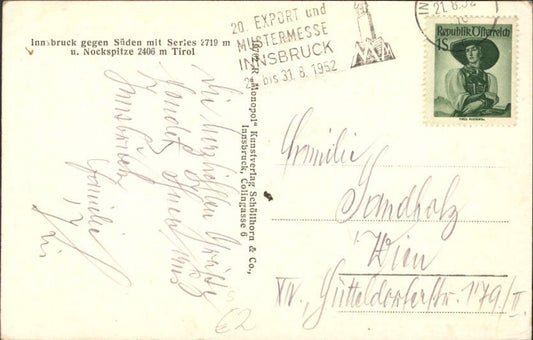 Innsbruck gegen Süden mit Serles 2719 m
u. Nockspitze 2406 m Tirol
20. EXPORT und
MUSTERMESSE
INNSBRUCK
bis 31. 8. 1952
21. 8. 52
Republik Österreich
1S
"Monopol" Kunstverlag Schöllhorn & Co.,
Innsbruck, Colingasse 6
Die herzlichsten Grüße
sendet Ihnen aus
Innsbruck
Familie
Familie
Sandholz
Wien
XIV., Hütteldorferstr. 179/II